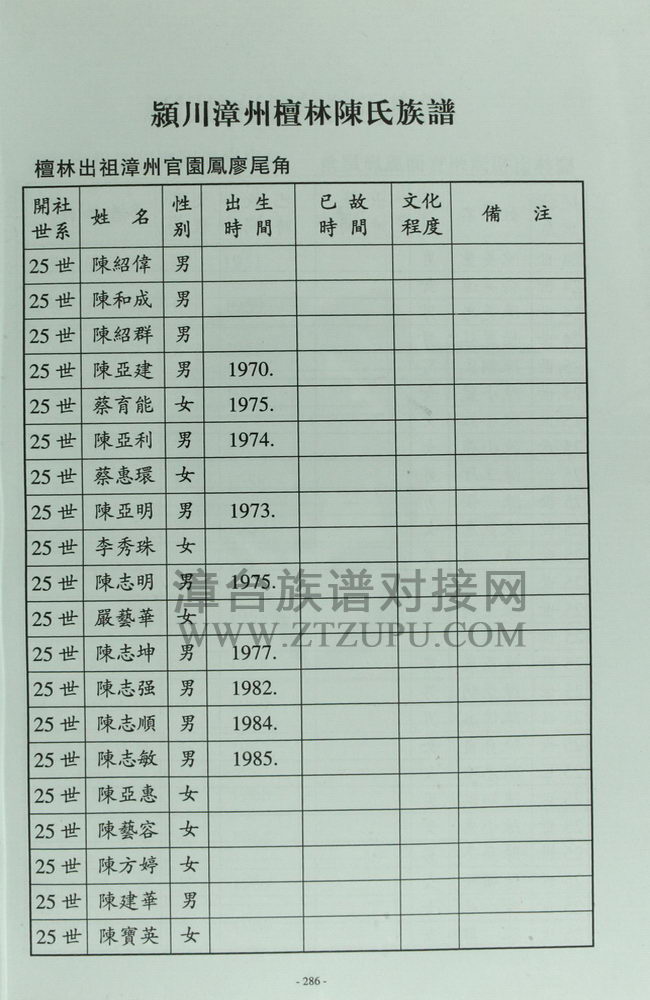 潁川漳州檀林陳氏族譜
檀林出祖漳州官園鳳廖尾角
開社世系 姓名 性别 出生時間 已故時間 文化程度 備注
25世 陳紹偉 男
25世 陳和成 男
25世 陳紹群 男
25世 陳亞建 男 1970.
25世 蔡育能 女 1975.
25世 陳亞利 男 1974.
25世 蔡惠環 女
25世 陳亞明 男 1973.
25世 李秀珠 女
25世 陳志明 男 1975.
25世 嚴藝華 女
25世 陳志坤 男 1977.
25世 陳志强 男 1982.
25世 陳志順 男 1984.
25世 陳志敏 男 1985.
25世 陳亞惠 女
25世 陳藝容 女
25世 陳方婷 女
25世 陳建華 男
25世 陳寶英 女
漳台族谱对接网
WWW.ZTZUPU.COM
- 286 -